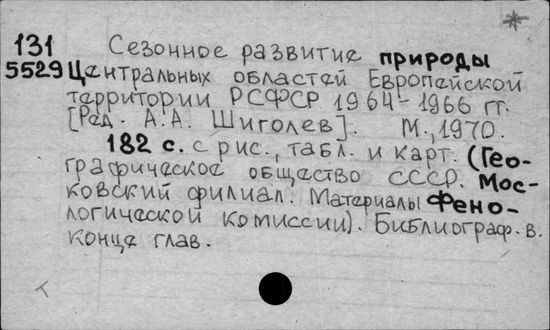 131 Сезонное развитие природы
5529 Центральных областей Европейской
территории РСФСР 1964-1966 гг.
[Ред. А.А. Шиголев]. М., 1970.
182 с. с рис., табл. и карт. (Гео-
графическое общество СССР. Мос-
ковский филиал. Материалы Фено-
логической комиссии). Библиограф. в.
конце глав.
т